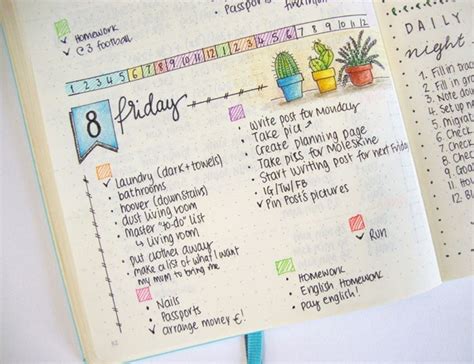 Passports
Homework
C3 football
1 2 3 4 5 6 7 8 9 10 11 12 1 2 3 4 5 6 7 8 9 10 11 12
8 friday
Laundry (dark + towels)
bathrooms
hoover (downstairs)
dust living room
master "to-do" list
↳ Living room
put clothes away
make a list of what I want
my mum to bring me
Nails
Passports
✓ arrange money €!
Write post for Monday
Take pics
Create planning page
Take pics for moleskine
Start writing post for next Friday
IG/TW/FB
✓ Pin Post's pictures
✓ Run
Homework
English Homework
pay English!
DAILY
night
1. Fill in
2. Fill in
3. Note
4. Set up
5. Migrat
6. Check